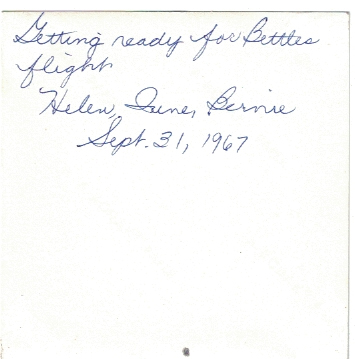 Getting ready for Bettles
flight
Helen, June, Bernie
Sept. 31, 1967